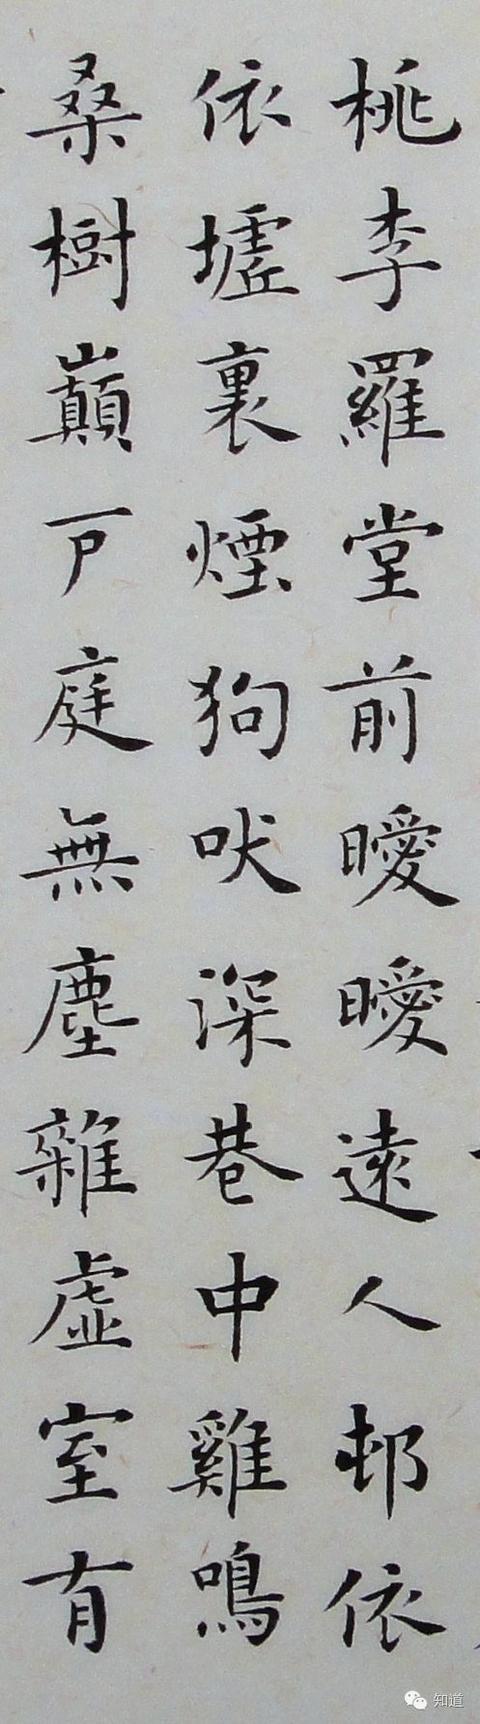 桃李羅堂前曖曖遠人邨依
依墟裏煙狗吠深巷中雞鳴
桑樹巔戶庭無塵雜虛室有
知道